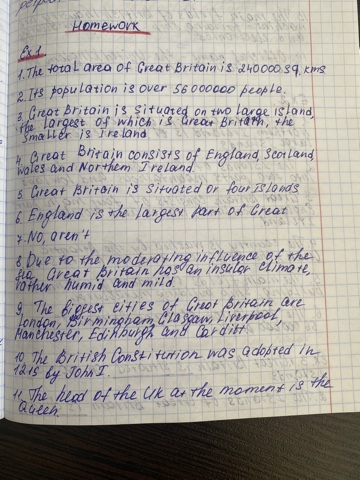 Homework
Ex.1
1. The total area of Great Britain is 240000 sq. kms
2. Its population is over 56 000000 people.
3. Great Britain is situated on two large island,
the largest of which is Great Britain, the
smaller is Ireland.
4. Great Britain consists of England, Scotland,
Wales and Northern Ireland
5. Great Britain is situated or four islands
6. England is the largest part of Great
7. No, aren't
8. Due to the moderating influence of the
sea Great Britain has an insular climate,
rather humid and mild
9. The biggest cities of Great Britain are
London, Birmingham, Glasgow, Liverpool,
Manchester, Edinburgh and Cardiff.
10. The British Constitution was adopted in
1215 by John I.
11. The head of the UK at the moment is the
Queen.